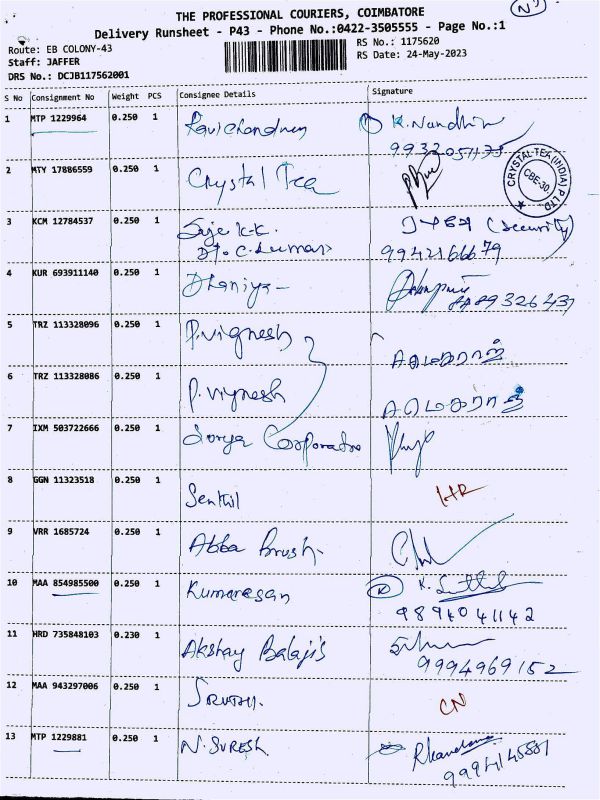 THE PROFESSIONAL COURIERS, COIMBATORE
Delivery Runsheet - P43 - Phone No.:0422-3505555 - Page No.:1
Route: EB COLONY-43
RS No.: 1175620
Staff: JAFFER
RS Date: 24-May-2023
DRS No.: DCJB117562001
S No Consignment No Weight PCS Consignee Details Signature
1 MTP 1229964 0.250 1 Ravichandran K. Nandhin
2 MTY 17886559 0.250 1 Crystal Tea
CRYSTAL TEA (INDIA) P LTD
CBE-30
3 KCM 12784537 0.250 1 Saje K.K. (Security)
C. Kumar 9942166679
4 KUR 693911140 0.250 1 Dhaniya
5 TRZ 113328096 0.250 1 P. Vignesh
6 TRZ 113328086 0.250 1 P. Vignesh
7 IXM 503722666 0.250 1 Surya Corporation
8 GGN 11323518 0.250 1 Senthil
9 VRR 1685724 0.250 1 Abba Brush
10 MAA 854985500 0.250 1 Kumaresan K.
9894041142
11 HRD 735848103 0.230 1 Akshay Balaji's
9994969152
12 MAA 943297006 0.250 1 SRUTHI. CN
13 MTP 1229881 0.250 1 N. SURESH